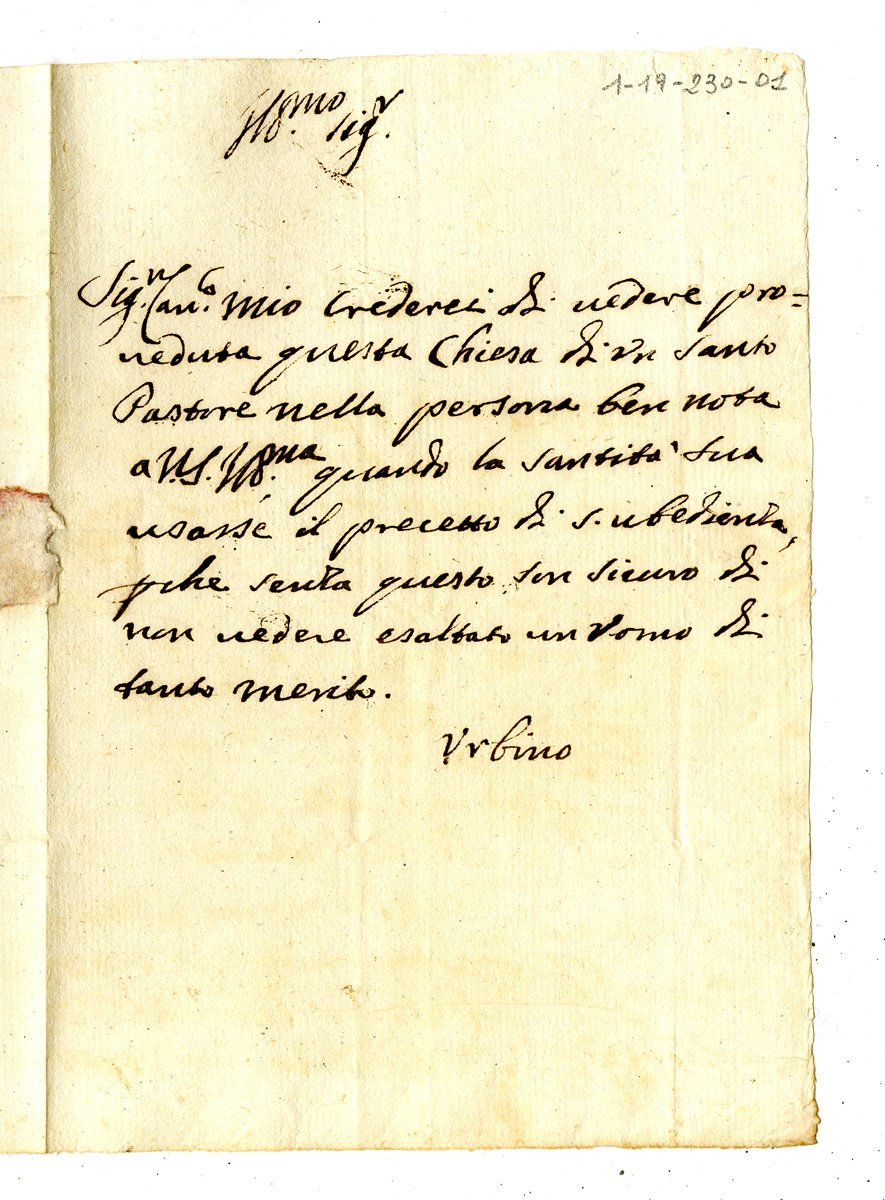 1-19-230-01
Ill.mo Sig.r
Sig.r Can.co mio Crederei di uedere pro=
ueduta questa Chiesa di vn santo
Pastore nella persona ben nota
a V.S. Ill.ma quando la santità sua
usasse il precetto di s. ubedienza,
pche senza questo son sicuro di
non uedere esaltato un Vomo di
tanto merito.
Vrbino